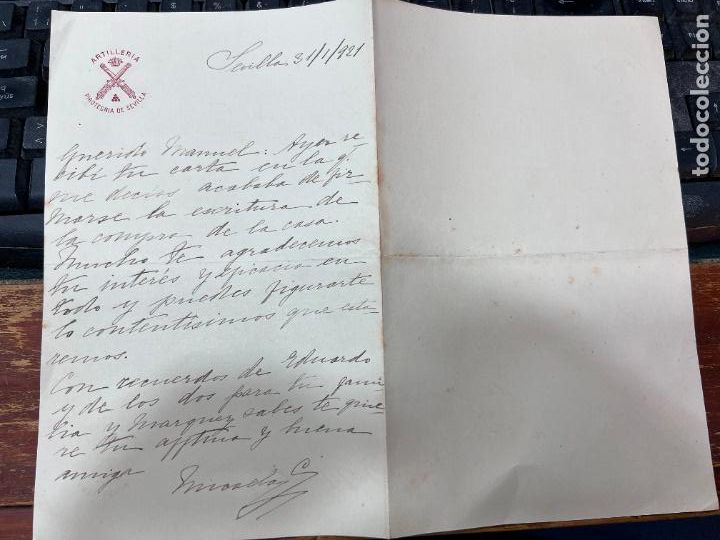 ARTILLERIA
PIROTECNIA DE SEVILLA
Sevilla 31/1/921
Querido Manuel: Ayer re
cibí tu carta en la q.
me decias acababa de fir-
marse la escritura de
la compra de la casa.
Mucho te agradecemos
tu interés y eficacia en
todo y puedes figurarte
lo contentísimos que esta-
remos.
Con recuerdos de Eduardo
y de los dos para tu fami
lia y Marquez sabes te quie
re tu afftma y buena
amiga
todocoleccion